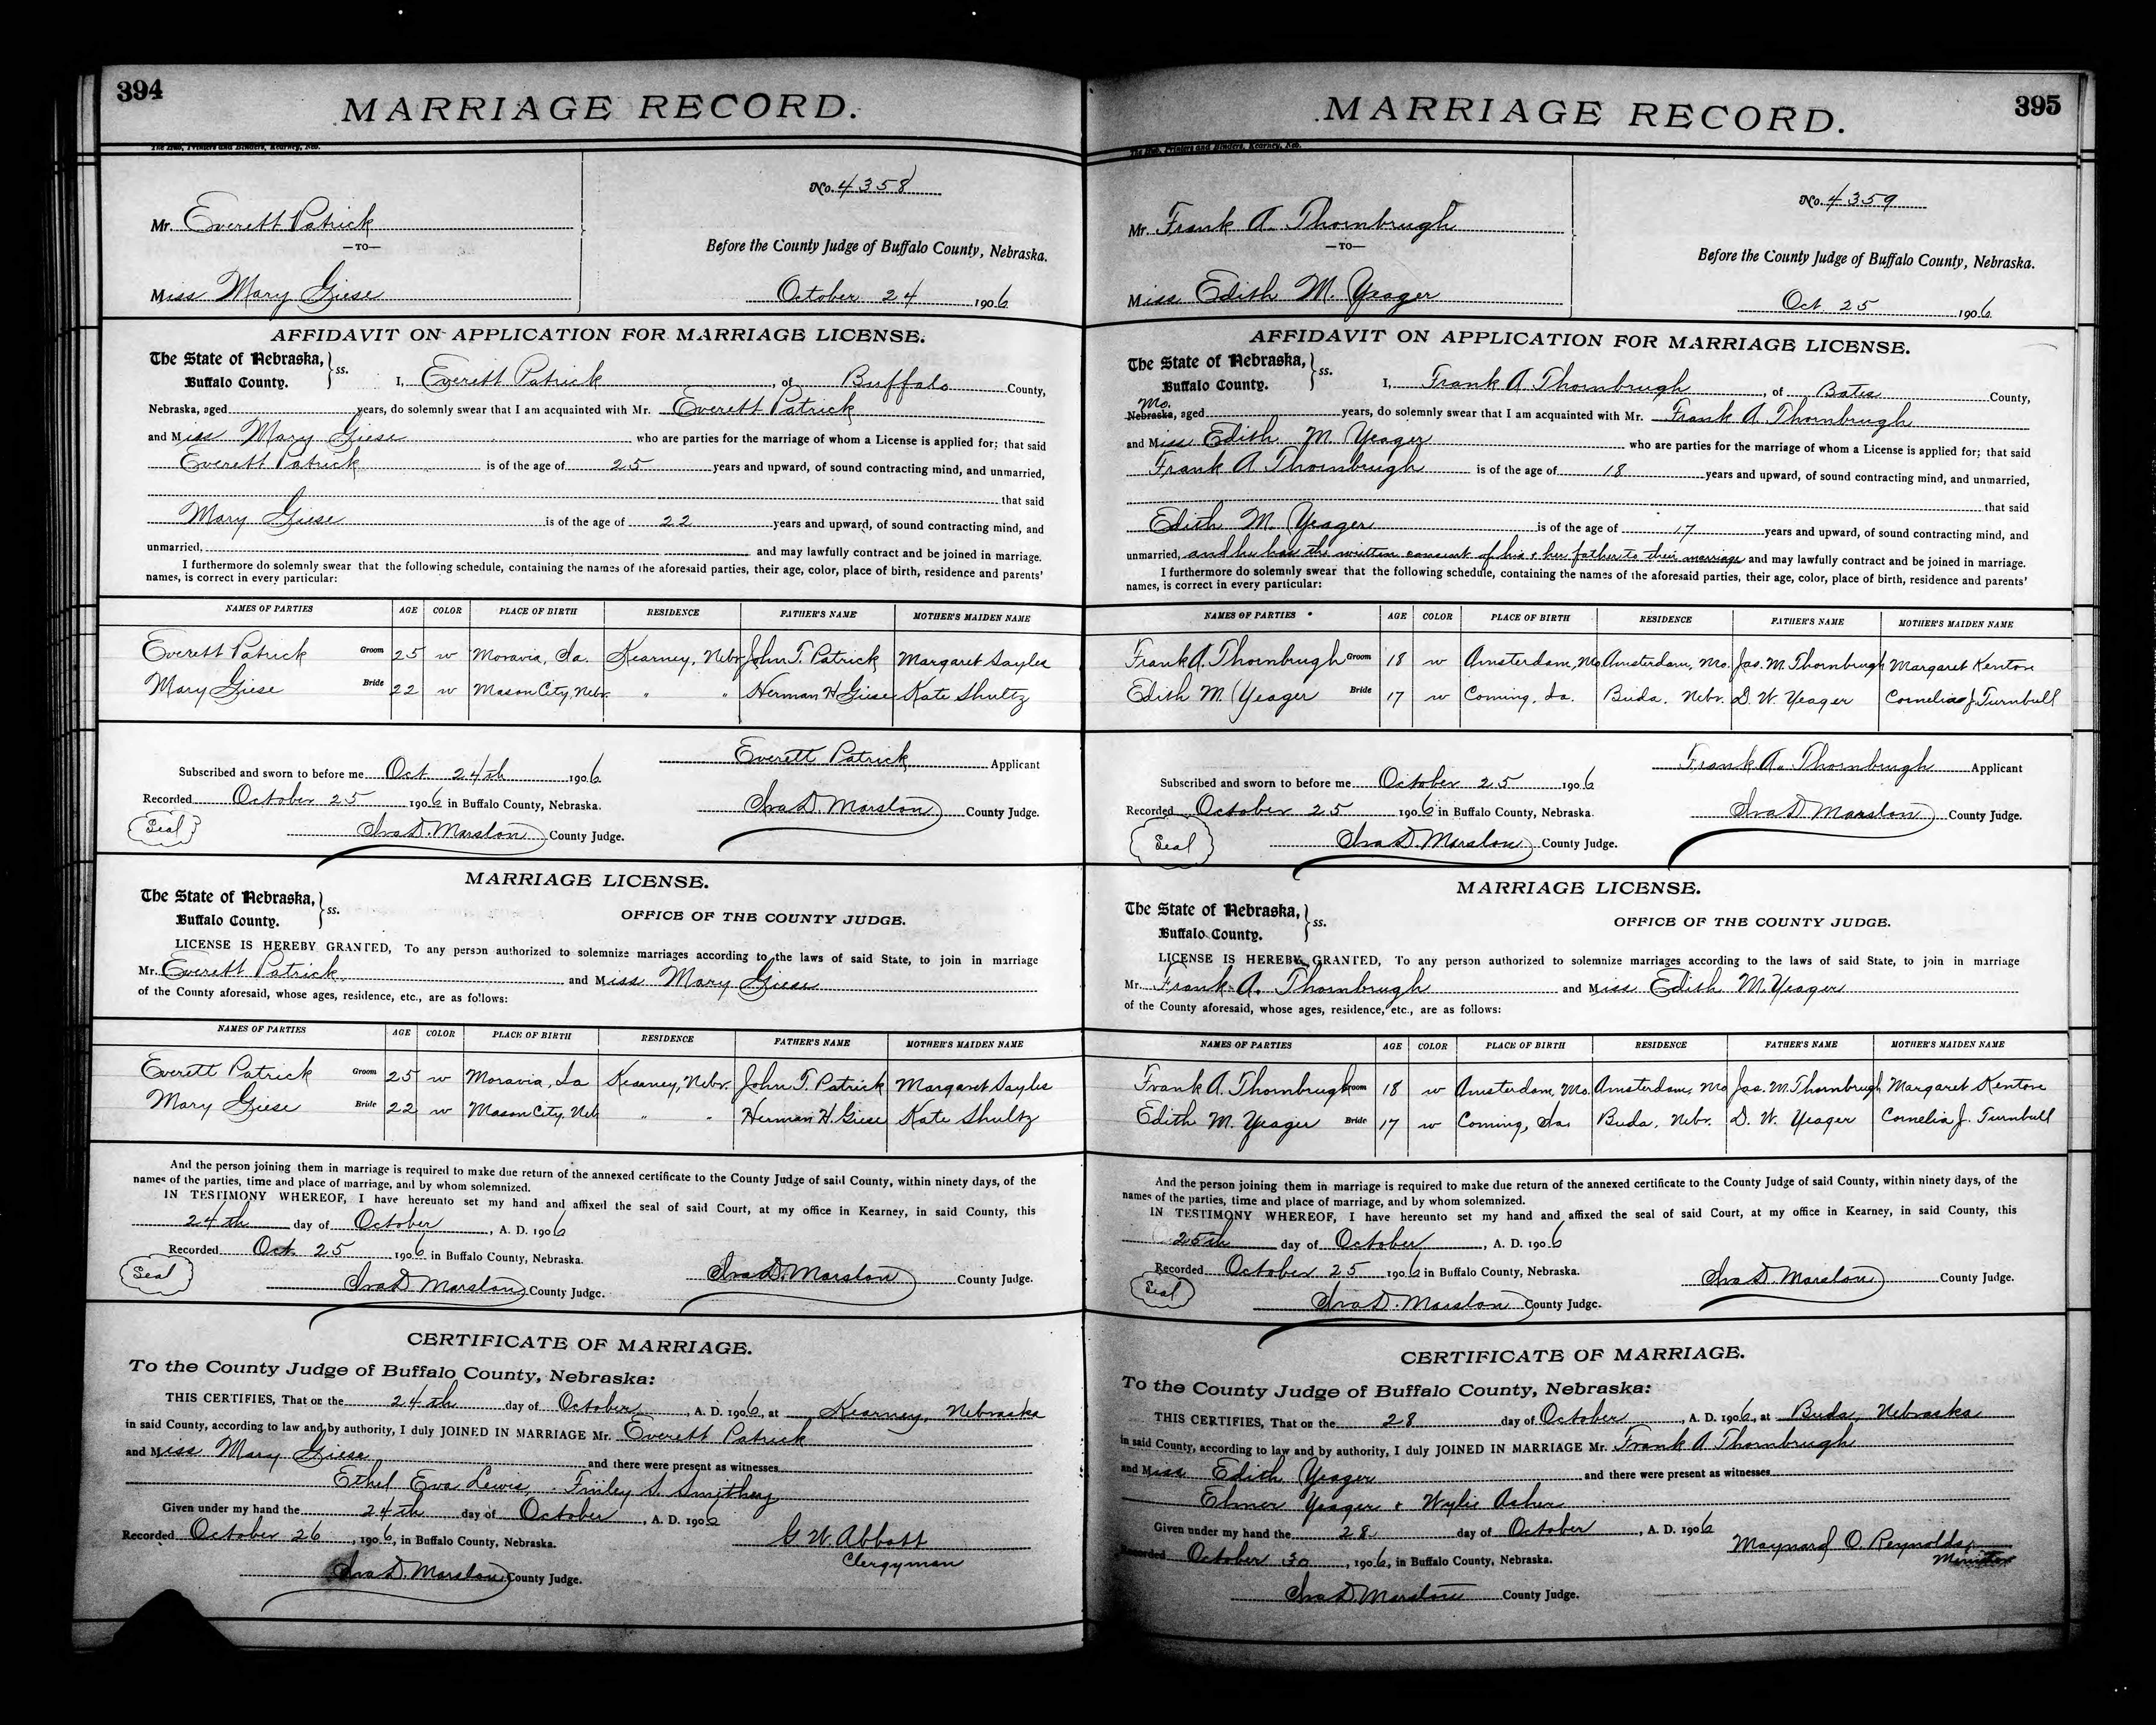 394
MARRIAGE RECORD.
The Hub, Printers and Binders, Kearney, Neb.
No. 4358
Mr. Everett Patrick
—TO—
Before the County Judge of Buffalo County, Nebraska.
Miss Mary Giese
October 24 1906
AFFIDAVIT ON APPLICATION FOR MARRIAGE LICENSE.
The State of Nebraska, } ss.
Buffalo County.
I, Everett Patrick, of Buffalo County,
Nebraska, aged years, do solemnly swear that I am acquainted with Mr. Everett Patrick
and Miss Mary Giese who are parties for the marriage of whom a License is applied for; that said
Everett Patrick is of the age of 25 years and upward, of sound contracting mind, and unmarried,
that said
Mary Giese is of the age of 22 years and upward, of sound contracting mind, and
unmarried, and may lawfully contract and be joined in marriage.
I furthermore do solemnly swear that the following schedule, containing the names of the aforesaid parties, their age, color, place of birth, residence and parents'
names, is correct in every particular:
NAMES OF PARTIES AGE COLOR PLACE OF BIRTH RESIDENCE FATHER'S NAME MOTHER'S MAIDEN NAME
Everett Patrick Groom 25 w Moravia, Ia. Kearney, Nebr. John T. Patrick Margaret Sayles
Mary Giese Bride 22 w Mason City, Nebr. " " Herman H. Giese Kate Shultz
Everett Patrick Applicant
Subscribed and sworn to before me Oct 24th 1906
Recorded October 25 1906 in Buffalo County, Nebraska.
Ira D. Marston County Judge.
Seal
Ira D. Marston County Judge.
MARRIAGE LICENSE.
The State of Nebraska, } ss.
Buffalo County.
OFFICE OF THE COUNTY JUDGE.
LICENSE IS HEREBY GRANTED, To any person authorized to solemnize marriages according to the laws of said State, to join in marriage
Mr. Everett Patrick and Miss Mary Giese
of the County aforesaid, whose ages, residence, etc., are as follows:
NAMES OF PARTIES AGE COLOR PLACE OF BIRTH RESIDENCE FATHER'S NAME MOTHER'S MAIDEN NAME
Everett Patrick Groom 25 w Moravia, Ia Kearney, Nebr. John T. Patrick Margaret Sayles
Mary Giese Bride 22 w Mason City, Neb " " Herman H. Giese Kate Shultz
And the person joining them in marriage is required to make due return of the annexed certificate to the County Judge of said County, within ninety days, of the
names of the parties, time and place of marriage, and by whom solemnized.
IN TESTIMONY WHEREOF, I have hereunto set my hand and affixed the seal of said Court, at my office in Kearney, in said County, this
24th day of October, A. D. 1906
Recorded Oct. 25 1906 in Buffalo County, Nebraska.
Seal
Ira D. Marston County Judge.
Ira D. Marston County Judge.
CERTIFICATE OF MARRIAGE.
To the County Judge of Buffalo County, Nebraska:
THIS CERTIFIES, That on the 24th day of October, A. D. 1906, at Kearney, Nebraska
in said County, according to law and by authority, I duly JOINED IN MARRIAGE Mr. Everett Patrick
and Miss Mary Giese and there were present as witnesses
Ethel Eva Lewis, Finley S. Smithey
Given under my hand the 24th day of October, A. D. 1906
Recorded October 26, 1906, in Buffalo County, Nebraska.
G W Abbott
Clergyman
Ira D. Marston County Judge.
395
MARRIAGE RECORD.
The Hub, Printers and Binders, Kearney, Neb.
No. 4359
Mr. Frank A. Thornbrugh
—TO—
Before the County Judge of Buffalo County, Nebraska.
Miss Edith M. Yeager
Oct 25 1906
AFFIDAVIT ON APPLICATION FOR MARRIAGE LICENSE.
The State of Nebraska, } ss.
Buffalo County.
I, Frank A Thornbrugh, of Bates County,
Mo.
Nebraska, aged years, do solemnly swear that I am acquainted with Mr. Frank A. Thornbrugh
and Miss Edith M. Yeager who are parties for the marriage of whom a License is applied for; that said
Frank A Thornbrugh is of the age of 18 years and upward, of sound contracting mind, and unmarried,
that said
Edith M. Yeager is of the age of 17 years and upward, of sound contracting mind, and
unmarried, and he has the written consent of his & her father to their marriage and may lawfully contract and be joined in marriage.
I furthermore do solemnly swear that the following schedule, containing the names of the aforesaid parties, their age, color, place of birth, residence and parents'
names, is correct in every particular:
NAMES OF PARTIES AGE COLOR PLACE OF BIRTH RESIDENCE FATHER'S NAME MOTHER'S MAIDEN NAME
Frank A. Thornbrugh Groom 18 w Amsterdam, Mo Amsterdam, Mo. Jas. M Thornbrugh Margaret Kenton
Edith M. Yeager Bride 17 w Corning, Ia. Buda, Nebr. D. W. Yeager Cornelia J. Turnbull
Frank A. Thornbrugh Applicant
Subscribed and sworn to before me October 25 1906
Recorded October 25 1906 in Buffalo County, Nebraska.
Ira D Marston County Judge.
Seal
Ira D. Marston County Judge.
MARRIAGE LICENSE.
The State of Nebraska, } ss.
Buffalo County.
OFFICE OF THE COUNTY JUDGE.
LICENSE IS HEREBY GRANTED, To any person authorized to solemnize marriages according to the laws of said State, to join in marriage
Mr. Frank A. Thornbrugh and Miss Edith M. Yeager
of the County aforesaid, whose ages, residence, etc., are as follows:
NAMES OF PARTIES AGE COLOR PLACE OF BIRTH RESIDENCE FATHER'S NAME MOTHER'S MAIDEN NAME
Frank A. Thornbrugh Groom 18 w Amsterdam, Mo. Amsterdam, Mo Jas. M. Thornbrugh Margaret Kenton
Edith M. Yeager Bride 17 w Corning, Ia. Buda, Nebr. D. W. Yeager Cornelia J. Turnbull
And the person joining them in marriage is required to make due return of the annexed certificate to the County Judge of said County, within ninety days, of the
names of the parties, time and place of marriage, and by whom solemnized.
IN TESTIMONY WHEREOF, I have hereunto set my hand and affixed the seal of said Court, at my office in Kearney, in said County, this
25th day of October, A. D. 1906
Recorded October 25 1906 in Buffalo County, Nebraska.
Seal
Ira D. Marston County Judge.
Ira D. Marston County Judge.
CERTIFICATE OF MARRIAGE.
To the County Judge of Buffalo County, Nebraska:
THIS CERTIFIES, That on the 28 day of October, A. D. 1906, at Buda, Nebraska
in said County, according to law and by authority, I duly JOINED IN MARRIAGE Mr. Frank A Thornbrugh
and Miss Edith Yeager and there were present as witnesses
Elmer Yeager & Wylie Asher
Given under my hand the 28 day of October, A. D. 1906
Recorded October 30, 1906, in Buffalo County, Nebraska.
Maynard O. Reynolds,
Minister
Ira D. Marston County Judge.